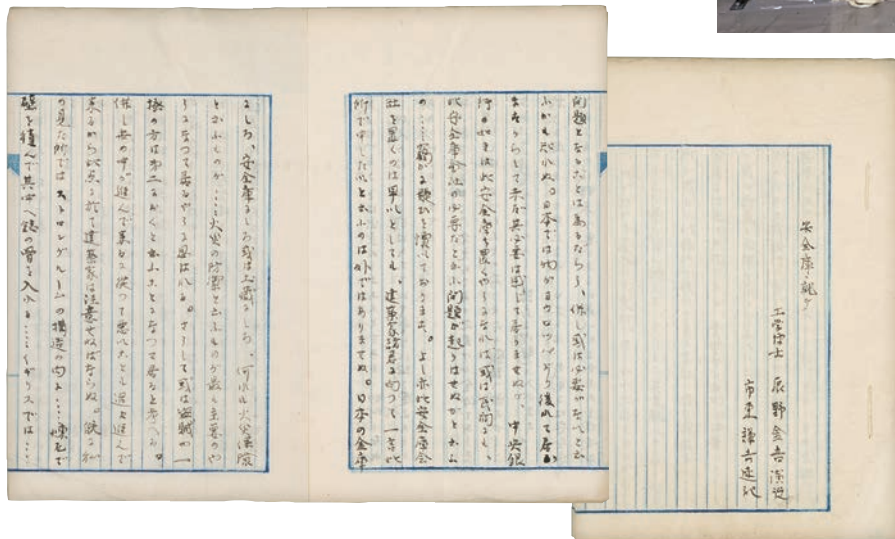 安全庫ニ就テ
工学博士 辰野金吾演述
市東謙吉速記
問題となることは有るならう、併し或は必要がないと云
ふかも知れぬ。日本では物がヨウロツパより後れて居り
ますからして未だ其必要は感じて居りませぬが、中央銀
行の如きは此安全庫を置くやうになれば或は民間にも、
此安全庫会社の必要などと云ふ問題が起りはせぬかと云ふ
の……疑ひを懐いております。よし亦此安全庫会
社を置くのは早いとしても、建築家諸君に向つて一言此
所で申したいと云ふのは外ではありませぬ。日本の金庫
にしろ、安全庫にしろ或は土蔵にしろ、何れも火災保険
と云ふものが……火災の防禦と云ふものが最も主要のや
うになつて居るやうに思はれる。さうして或は盗賊の一
の方は第二におくと云ふことになつて居ると考へる。
併し世の中が進んで来るに従つて悪いことも追々進んで
来るから此点に於て建築家は注意せねばならぬ。既に私
の見た所ではストロングルームの構造の内に……煉瓦で
壁を積んで其中へ鉄の骨を入れる……イギリスでは……